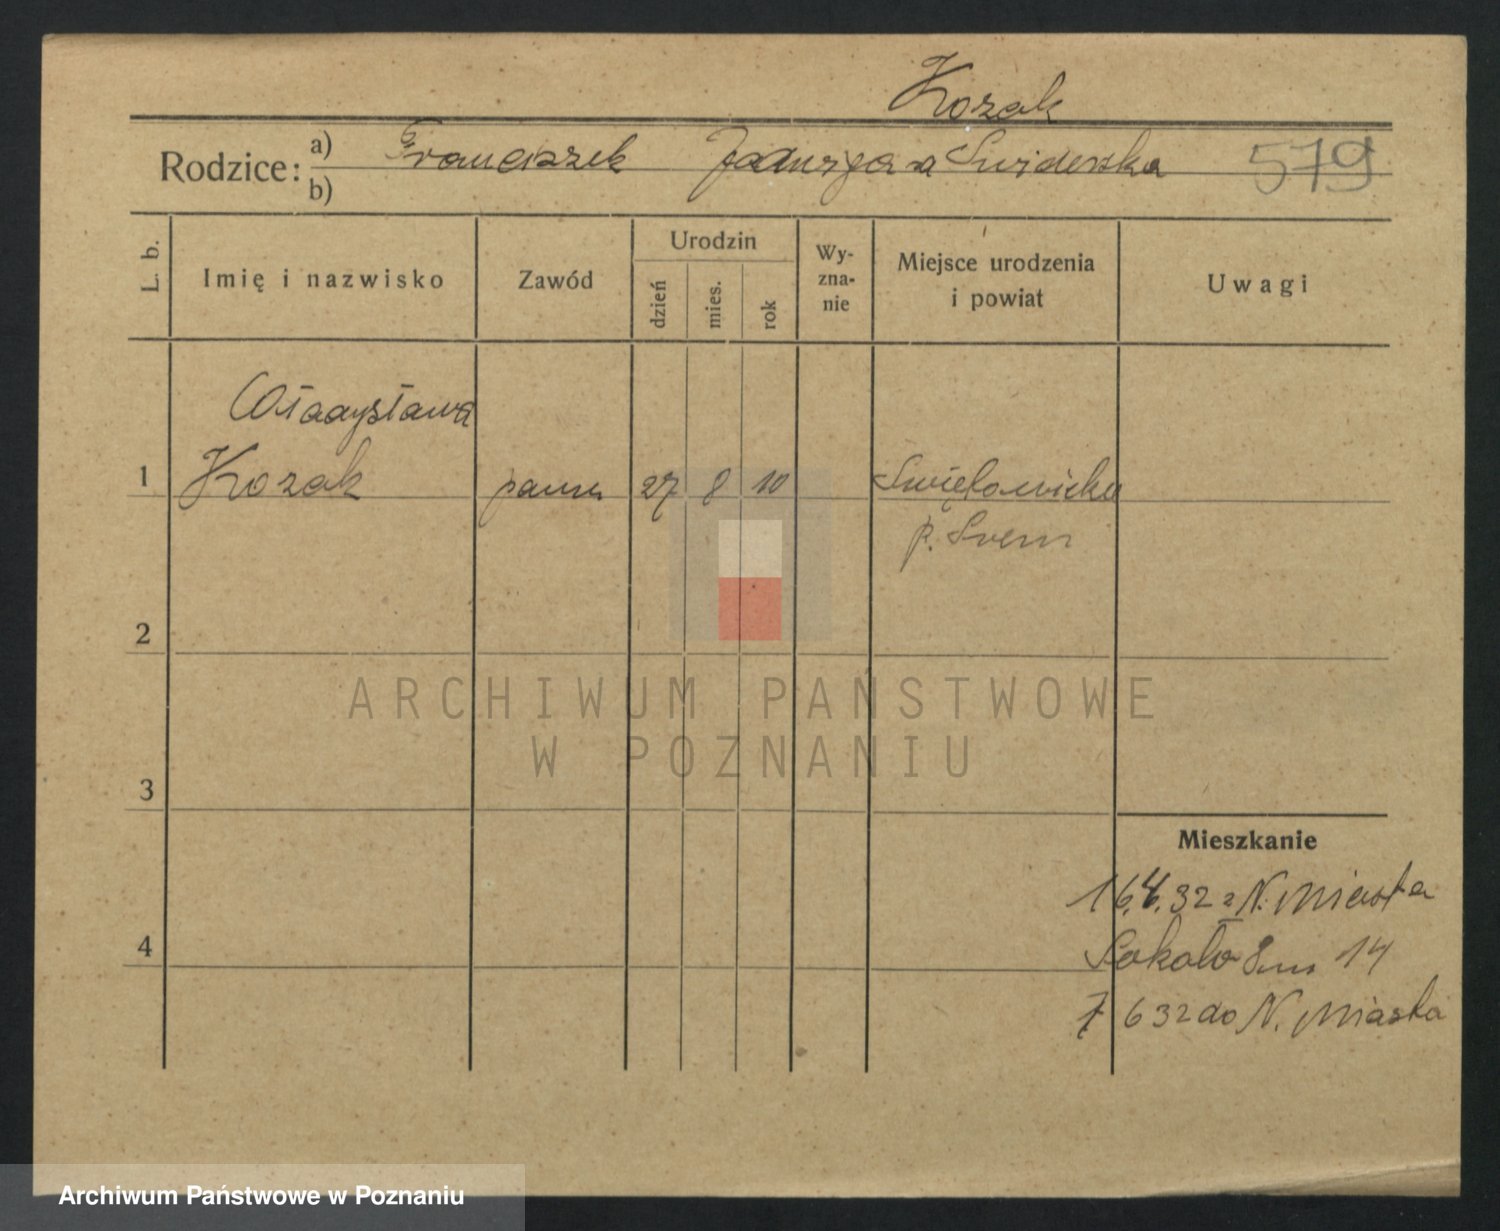 Kozak
Rodzice: a) Franciszek Jadwiga z Swiderska 579
b)
L. b. Imię i nazwisko Zawód Urodzin dzień mies. rok Wy-zna-nie Miejsce urodzenia i powiat Uwagi
Władysława
1 Kozak panna 27 8 10
p. Srem
2
ARCHIWUM PAŃSTWOWE
W POZNANIU
3
Mieszkanie
16.4.32 z N. Miasta
4 14
7 6 32 do N. Miasta
Archiwum Państwowe w Poznaniu